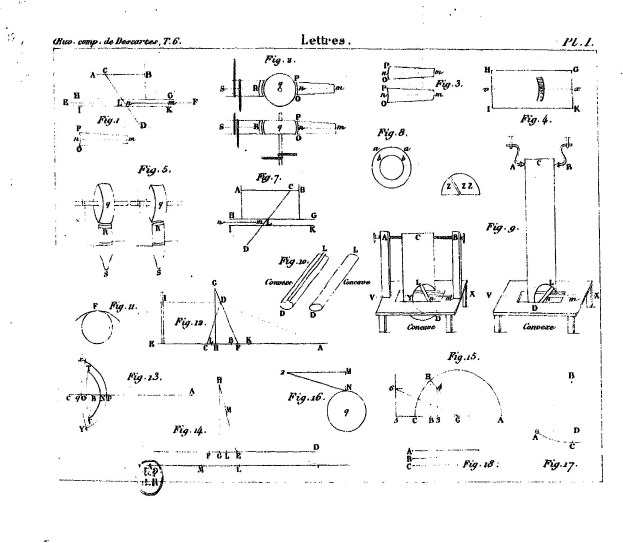 Œuv. comp. de Descartes, T. 6. Lettres. Pl. 1.
Fig. 1
A C B
H G
E L n m F
I K
D
P
n m
O
Fig. 2.
S R q P n m O
S R q P n m O
Fig. 3.
P n m O
P n m O
Fig. 4.
H G
I K
Fig. 5.
q q
R R
S S
Fig. 7.
A C B
H G
n m L
I K
D
Fig. 8.
a a
b b
2 22
Fig. 9.
A C B
A C B
V L n m D X
V L n m D X
Concave Convexe
Fig. 10.
L L
Convexe Concave
D D
Fig. 11.
F
Fig. 12.
G
I D
E C H B F K A
Fig. 13.
T
C O B N P A
Y F
Fig. 14.
H
M
F G L E D
M L
Fig. 15.
H
6
S C B 3 G A
Fig. 16.
2 M
N
q
Fig. 17.
B
A D
C
Fig. 18.
A
B
C